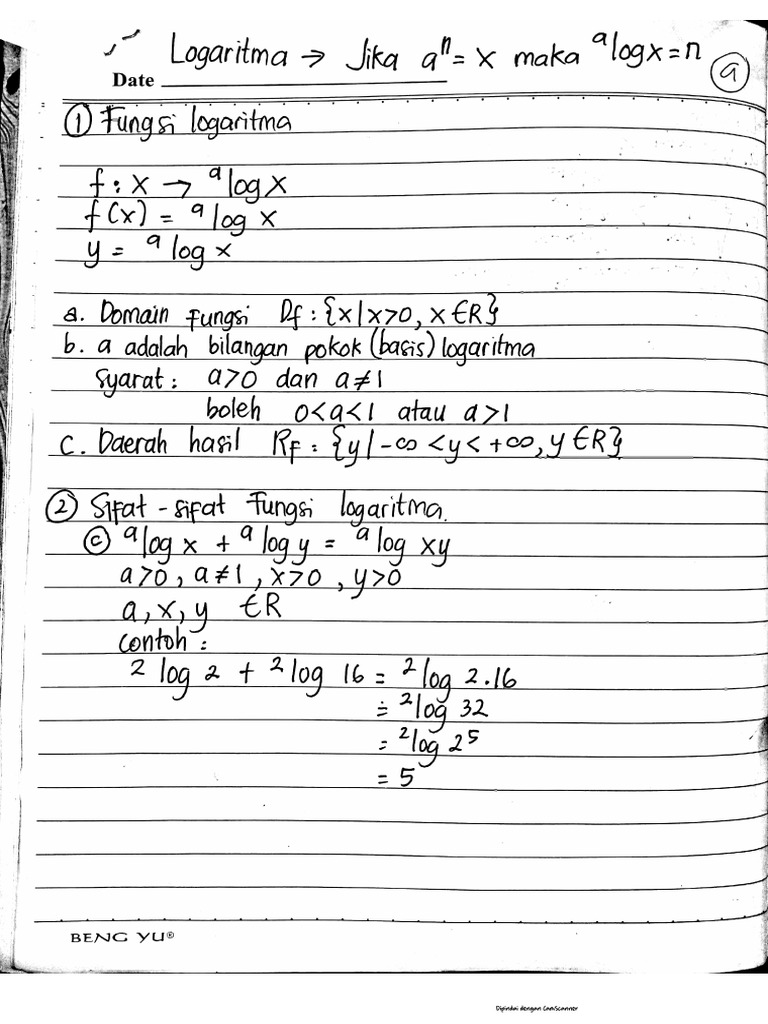 Logaritma → Jika aⁿ = x maka ᵃlog x = n
Date
a
① Fungsi logaritma
f : x → ᵃlog x
f(x) = ᵃlog x
y = ᵃlog x
a. Domain fungsi Df : {x | x>0, x ∈ R}
b. a adalah bilangan pokok (basis) logaritma
syarat : a>0 dan a≠1
boleh 0<a<1 atau a>1
c. Daerah hasil Rf : {y | -∞ < y < +∞, y ∈ R}
② Sifat - sifat Fungsi logaritma.
ⓒ ᵃlog x + ᵃlog y = ᵃlog xy
a>0, a≠1, x>0, y>0
a, x, y ∈ R
contoh :
²log 2 + ²log 16 = ²log 2.16
= ²log 32
= ²log 2⁵
= 5
BENG YU®
Dipindai dengan CamScanner